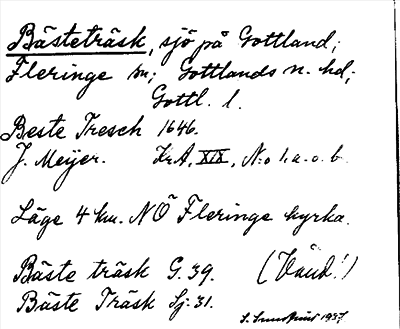 Bästeträsk, sjö på Gottland;
Fleringe sn; Gottlands n. hd;
Gottl. l.
Beste Tresch 1646.
J. Meyer. Kr.A. XIX, N:o 1. a. o. b.
Läge 4 km. NÖ Fleringe kyrka.
Bäste träsk G. 39. (Vänd!)
Bäste Träsk Sj. 31.
1937